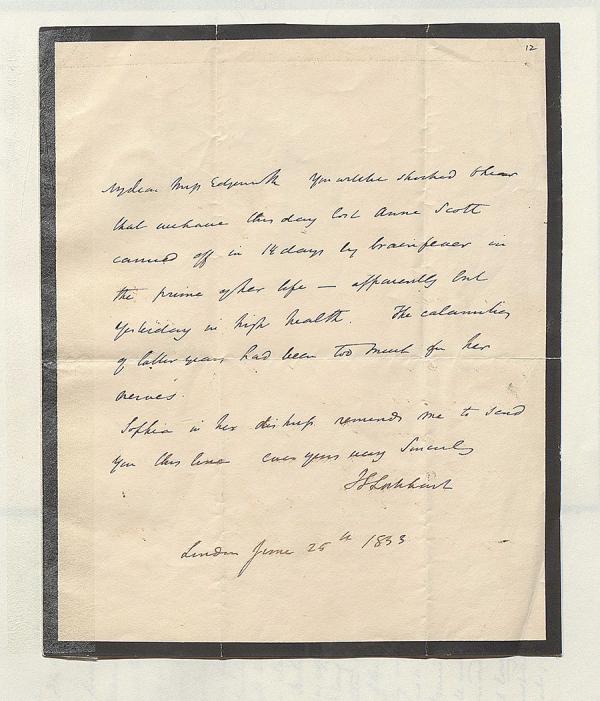 12
My dear Miss Edgeworth You will be shocked to hear
that we have this day lost Anne Scott
carried off in 14 days by brain fever in
the prime of her life — apparently but
yesterday in high health. The calamities
of latter years had been too much for her
nerves.
Sophia in her distress reminds me to send
you this line ever yours very Sincerely
J G Lockhart
London June 25th 1833